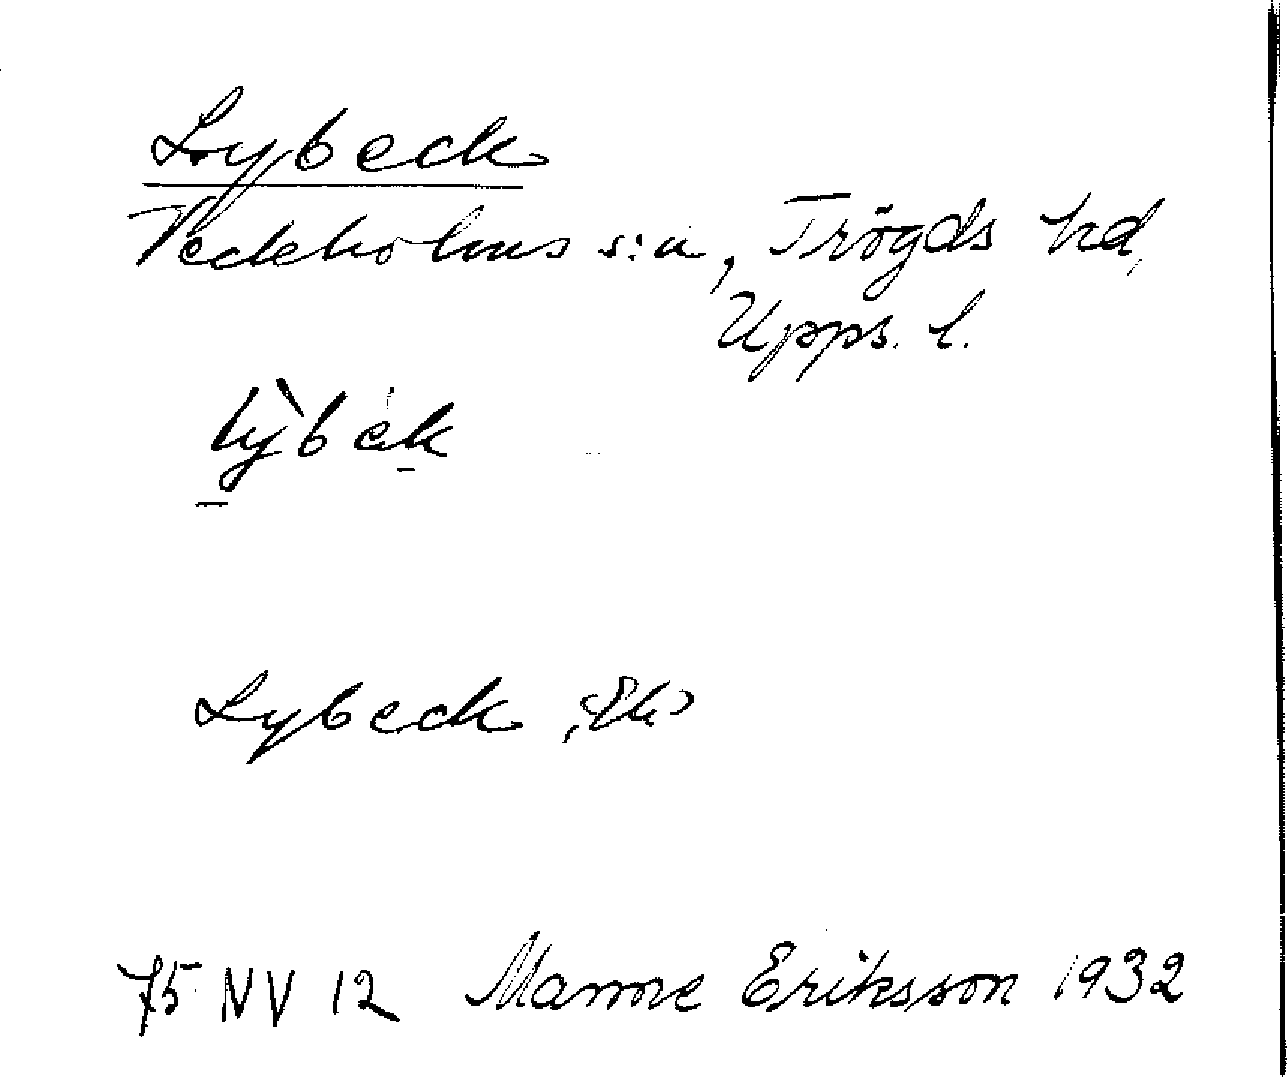 Lybeck
Veckholms s:n, Trögds hd,
Upps. l.
lỳbek
Lybeck, (Ek)
75 NV 12 Manne Eriksson 1932